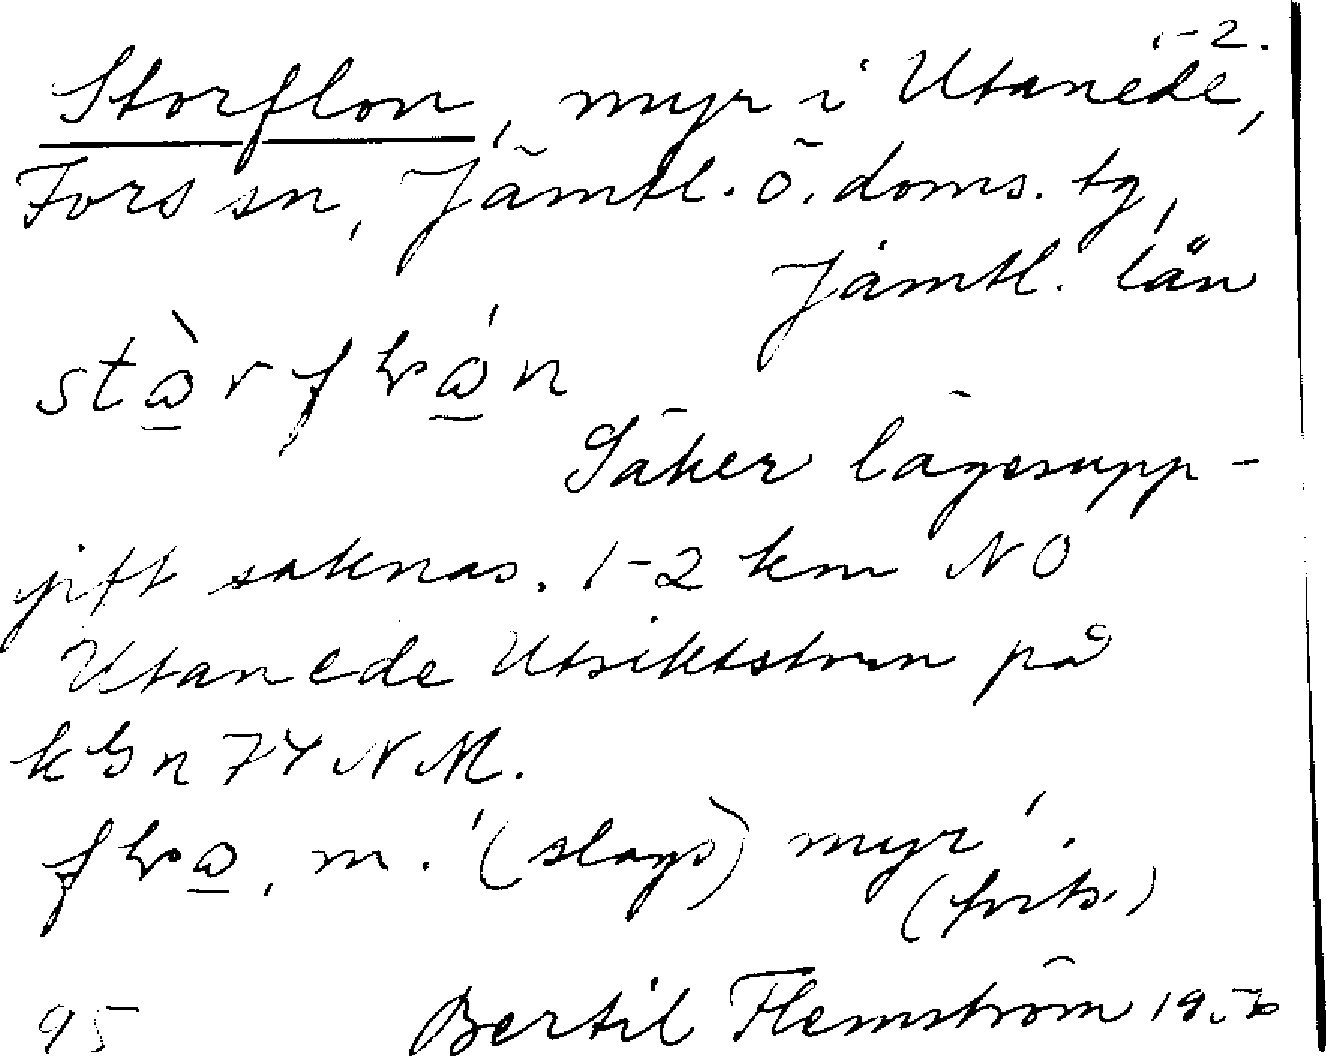 1-2.
Storflon, myr i Utanede,
Fors sn, Jämtl. ö. doms. tg,
Jämtl. län
Säker lägesupp-
gift saknas. 1-2 km NO
Utanede Utsiktstorn på
kbn 74 NM.
m. '(slags) myr'.
(forts.)
95 Bertil Flemström